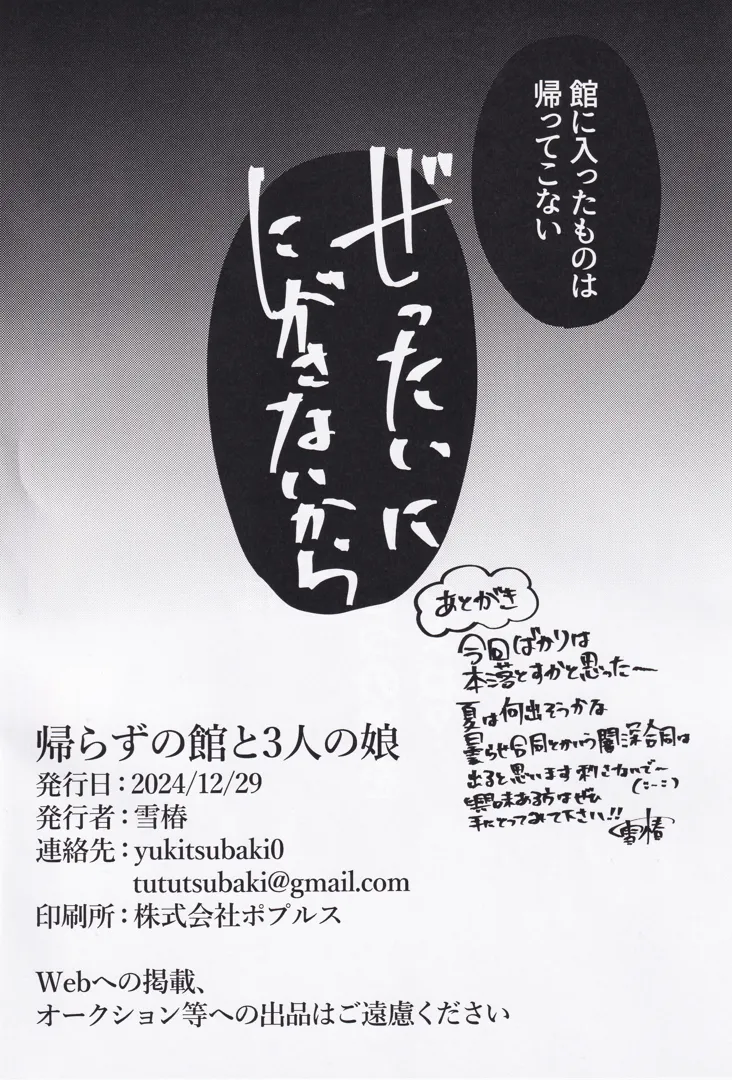 館に入ったものは
帰ってこない
ぜったいに
にがさないから
あとがき
今回ばかりは
本落とすかと思った〜
夏は何出そうかな
曇らせ合同とかいう闇深合同は
出ると思います刺さないで〜
興味ある方はぜひ
手にとってみて下さい!!
雪椿
帰らずの館と3人の娘
発行日：2024/12/29
発行者：雪椿
連絡先：yukitsubaki0
tututsubaki@gmail.com
印刷所：株式会社ポプルス
Webへの掲載、
オークション等への出品はご遠慮ください